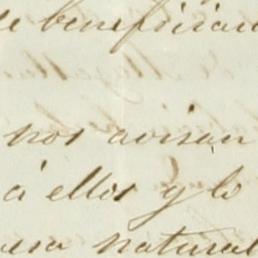 de beneficia
nos avisan
á ellos y lo
natural